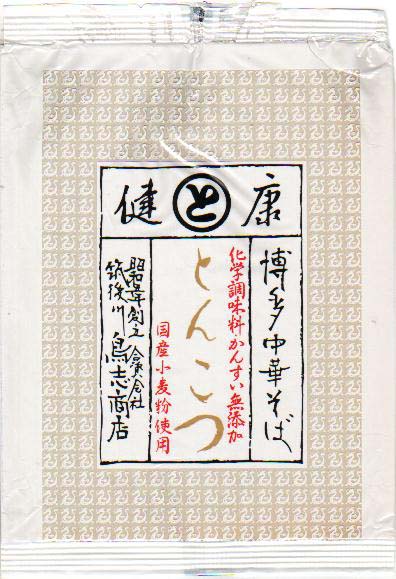 健 と 康
博多中華そば
化学調味料かんすい無添加
とんこつ
国産小麦粉使用
年創立 合資会社
筑後川 鳥志商店